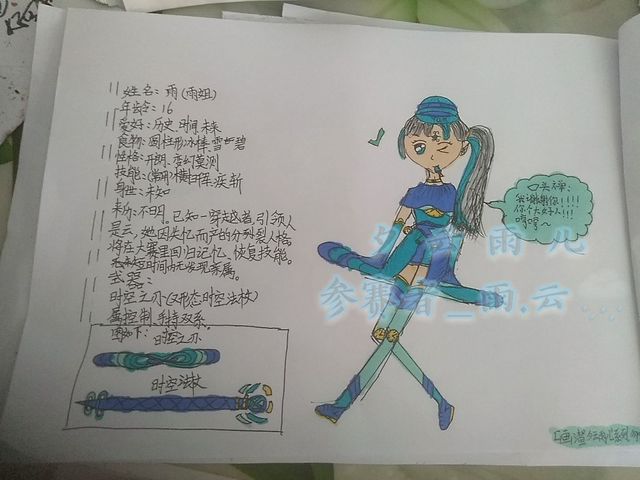 姓名：雨(雨组)
年龄：16
爱好：历史、时间、未来
食物：圆柱形冰棒、雪如碧
性格：开朗、变幻莫测
技能：(常用)横扫千军、疾斩
身世：未知
来历：不明。已知一穿越者，引领人
是云，她因失忆而产的分列裂人格，
将在大赛里回归记忆，恢复技能。
短时间内无发现亲属。
武器：
时空之刃(双形态时空法杖)
属控制、手持双系。
图如下：
时空之刃
时空法杖
口头禅：
我谢谢你!!!!
你个大好人!!!
哼哼~
雨儿
参赛者_雨.云